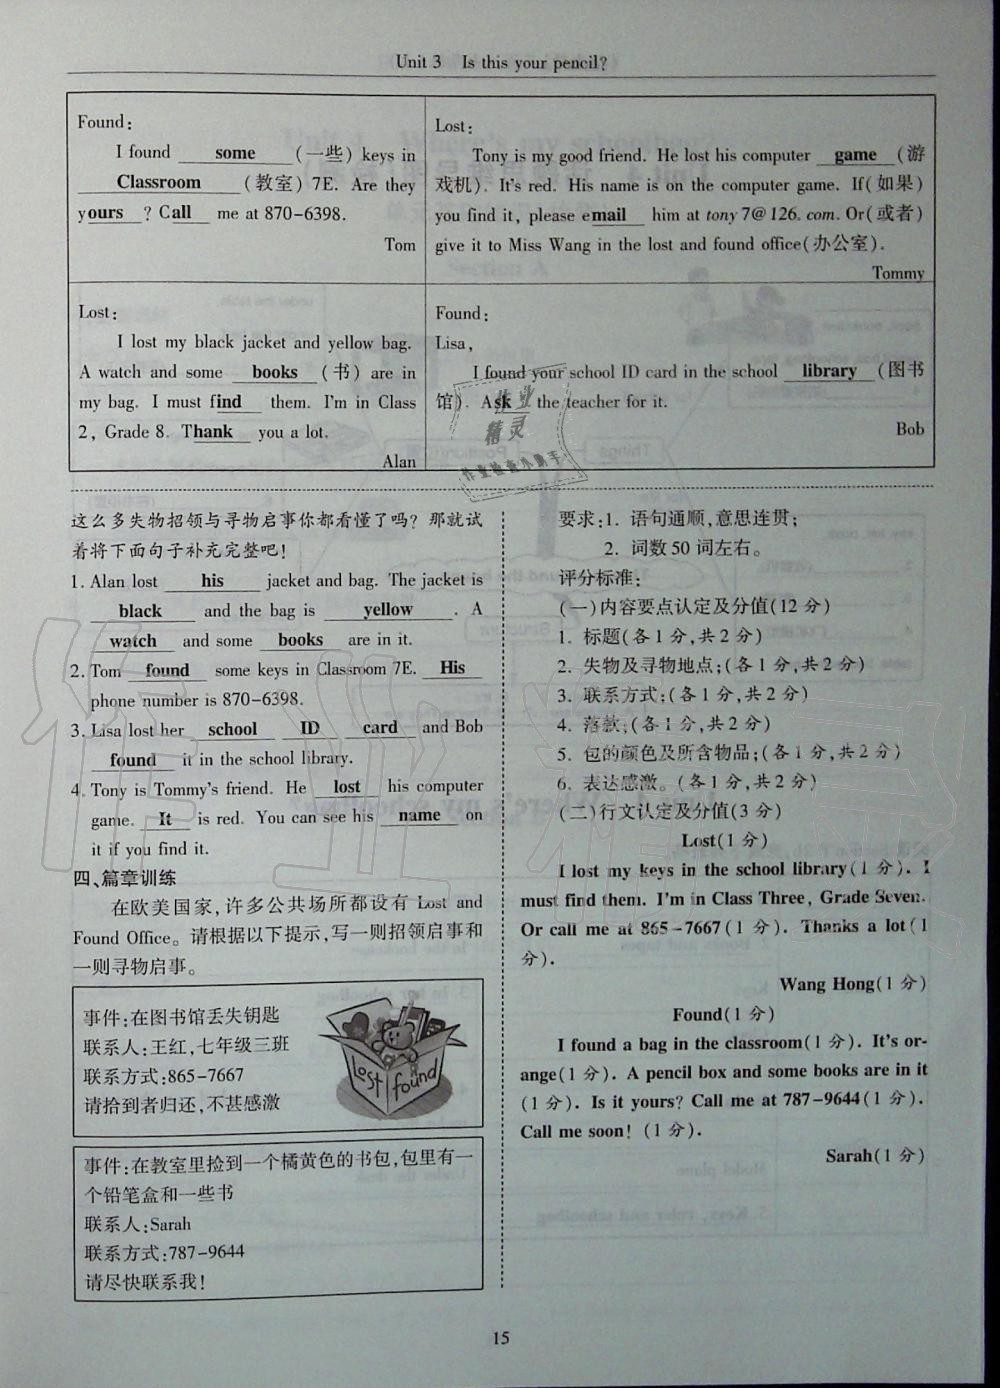 Unit 3 Is this your pencil?
Found:
I found some (一些) keys in
Classroom (教室) 7E. Are they
yours ? Call me at 870-6398.
Tom
Lost:
Tony is my good friend. He lost his computer game (游
戏机). It's red. His name is on the computer game. If(如果)
you find it, please email him at tony 7@126. com. Or(或者)
give it to Miss Wang in the lost and found office(办公室).
Tommy
Lost:
I lost my black jacket and yellow bag.
A watch and some books (书) are in
my bag. I must find them. I'm in Class
2, Grade 8. Thank you a lot.
Alan
Found:
Lisa,
I found your school ID card in the school library (图书
馆). Ask the teacher for it.
Bob
作业
精灵
作业检查小助手
这么多失物招领与寻物启事你都看懂了吗? 那就试
着将下面句子补充完整吧!
1. Alan lost his jacket and bag. The jacket is
black and the bag is yellow . A
watch and some books are in it.
2. Tom found some keys in Classroom 7E. His
phone number is 870-6398.
3. Lisa lost her school ID card and Bob
found it in the school library.
4. Tony is Tommy's friend. He lost his computer
game. It is red. You can see his name on
it if you find it.
四、篇章训练
在欧美国家,许多公共场所都设有 Lost and
Found Office。请根据以下提示,写一则招领启事和
一则寻物启事。
事件:在图书馆丢失钥匙
联系人:王红,七年级三班
联系方式:865-7667
请拾到者归还,不甚感激
Lost found
事件:在教室里捡到一个橘黄色的书包,包里有一
个铅笔盒和一些书
联系人:Sarah
联系方式:787-9644
请尽快联系我!
要求:1. 语句通顺,意思连贯;
2. 词数 50 词左右。
评分标准:
(一)内容要点认定及分值(12 分)
1. 标题(各 1 分,共 2 分)
2. 失物及寻物地点;(各 1 分,共 2 分)
3. 联系方式;(各 1 分,共 2 分)
4. 落款;(各 1 分,共 2 分)
5. 包的颜色及所含物品;(各 1 分,共 2 分)
6. 表达感激。(各 1 分,共 2 分)
(二)行文认定及分值(3 分)
Lost(1 分)
I lost my keys in the school library(1 分). I
must find them. I'm in Class Three, Grade Seven.
Or call me at 865-7667(1 分). Thanks a lot(1
分).
Wang Hong(1 分)
Found(1 分)
I found a bag in the classroom(1 分). It's or-
ange(1 分). A pencil box and some books are in it
(1 分). Is it yours? Call me at 787-9644(1 分).
Call me soon! (1 分).
Sarah(1 分)
15